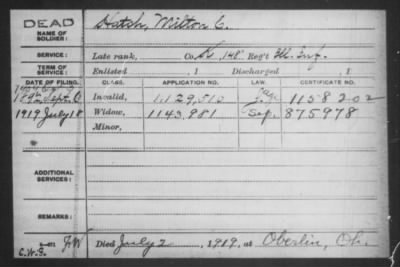 DEAD
NAME OF SOLDIER: Hatch, Milton C.
SERVICE: Late rank, Co. 148 Reg't Ill. Inf.
TERM OF SERVICE: Enlisted , 1 Discharged , 1
DATE OF FILING. CLASS. APPLICATION NO. LAW. CERTIFICATE NO.
Sept. Invalid, 1,129,510 1158202
1919 July 18 Widow, 1143,981 Sep. 875978
Minor,
ADDITIONAL SERVICES:
REMARKS:
C.W.S. Died July 2, 1919, at Oberlin, Oh.